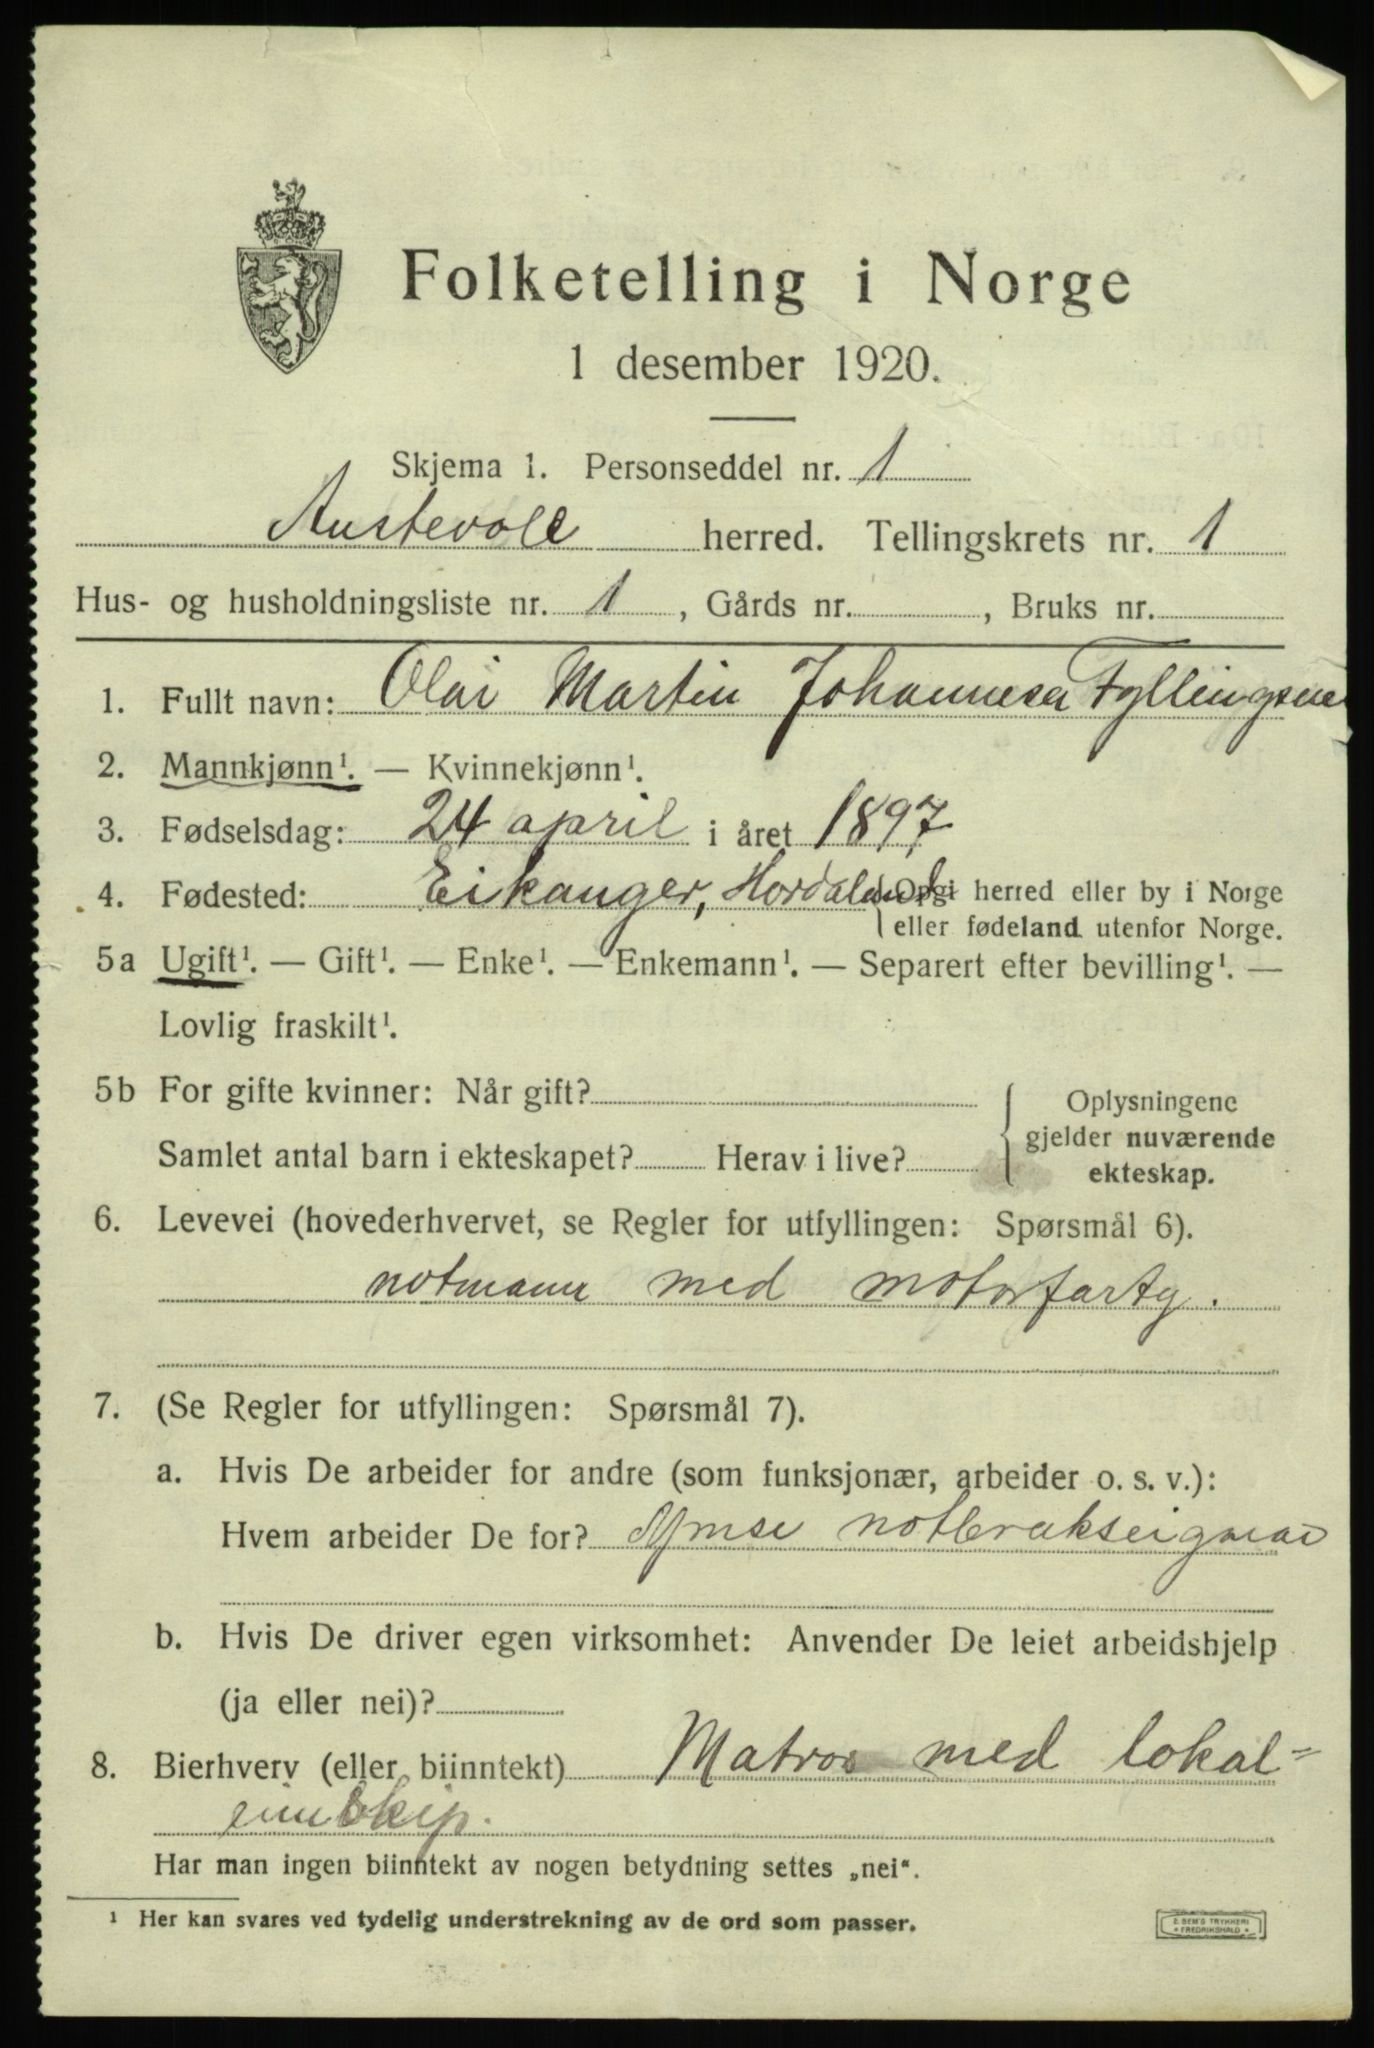 Folketelling i Norge
1 desember 1920.
Skjema 1. Personseddel nr. 1
Austevoll herred. Tellingskrets nr. 1
Hus- og husholdningsliste nr. 1, Gårds nr. , Bruks nr.
1. Fullt navn: Olai Martin Johannesen Fyllingsnes
2. Mannkjønn¹. — Kvinnekjønn¹.
3. Fødselsdag: 24 april i året 1897
4. Fødested: Eikanger, Hordaland {Opgi herred eller by i Norge
eller fødeland utenfor Norge.
5a Ugift¹. — Gift¹. — Enke¹. — Enkemann¹. — Separert efter bevilling¹. —
Lovlig fraskilt¹.
5b For gifte kvinner: Når gift?
Samlet antal barn i ekteskapet? Herav i live?
{ Oplysningene
gjelder nuværende
ekteskap.
6. Levevei (hovederhvervet, se Regler for utfyllingen: Spørsmål 6).
notmann med motorfarty.
7. (Se Regler for utfyllingen: Spørsmål 7).
a. Hvis De arbeider for andre (som funksjonær, arbeider o. s. v.):
Hvem arbeider De for? Ymse notbrukseignar
b. Hvis De driver egen virksomhet: Anvender De leiet arbeidshjelp
(ja eller nei)?
8. Bierhverv (eller biinntekt) Matros med lokal-
Har man ingen biinntekt av nogen betydning settes „nei“.
¹ Her kan svares ved tydelig understrekning av de ord som passer.
E. SEM'S TRYKKERI
FREDRIKSHALD